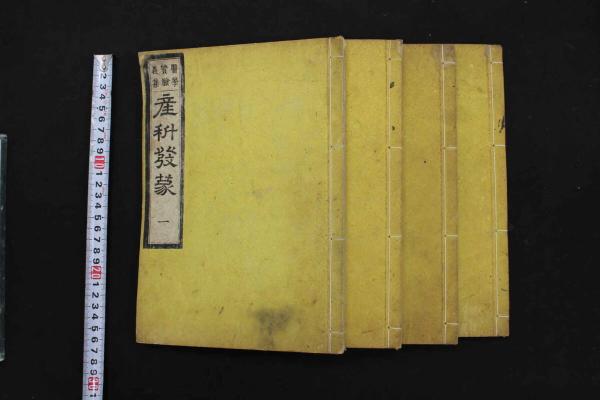 醫學
實驗
産科發蒙
一
1 2 3 4 5 6 7 8 9 10 1 2 3 4 5 6 7 8 9 20 1 2 3 4 5 6 7 8